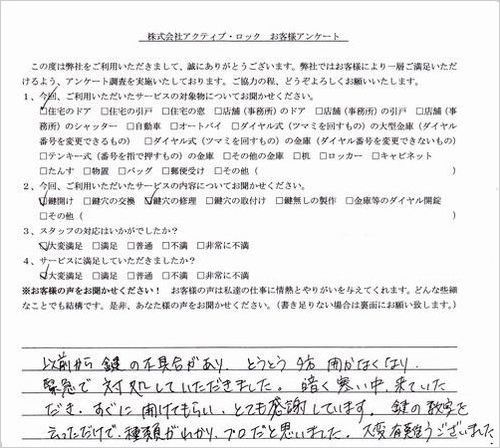 株式会社アクティブ・ロック　お客様アンケート
この度は弊社をご利用いただきまして、誠にありがとうございます。弊社ではお客様により一層ご満足いただ
けるよう、アンケート調査を実施いたしております。ご協力の程、どうぞよろしくお願いいたします。
1、今回、ご利用いただいたサービスの対象物についてお聞かせください。
☑住宅のドア　□住宅の引戸　□住宅の窓　□店舗（事務所）のドア　□店舗（事務所）の引戸　□店舗（事
務所）のシャッター　□自動車　□オートバイ　□ダイヤル式（ツマミを回すもの）の大型金庫（ダイヤル
番号を変更できるもの）　□ダイヤル式（ツマミを回すもの）の金庫（ダイヤル番号を変更できないもの）
□テンキー式（番号を指で押すもの）の金庫　□その他の金庫　□机　□ロッカー　□キャビネット
□たんす　□物置　□バッグ　□郵便受け　□その他（　　　）
2、今回、ご利用いただいたサービスの内容についてお聞かせください。
☑鍵開け　□鍵穴の交換　☑鍵穴の修理　□鍵穴の取付け　□鍵無しの製作　□金庫等のダイヤル開錠
□その他（　　　）
3、スタッフの対応はいかがでしたか？
☑大変満足　□満足　□普通　□不満　□非常に不満
4、サービスに満足していただきましたか？
☑大変満足　□満足　□普通　□不満　□非常に不満
※お客様の声をお聞かせください！　お客様の声は私達の仕事に情熱とやりがいを与えてくれます。どんな些細
なことでも結構です。是非、あなた様の声をお聞かせください。（書き足りない場合は裏面にお願い致します。）
以前から鍵の不具合があり、とうとう 開かなくなり、
緊急で対処していただきました。暗く寒い中、来ていた
だき、すぐに開けてもらい、とても感謝しています。鍵の
言っただけで、種類がわかり、プロだと思いました。大変有難うございました